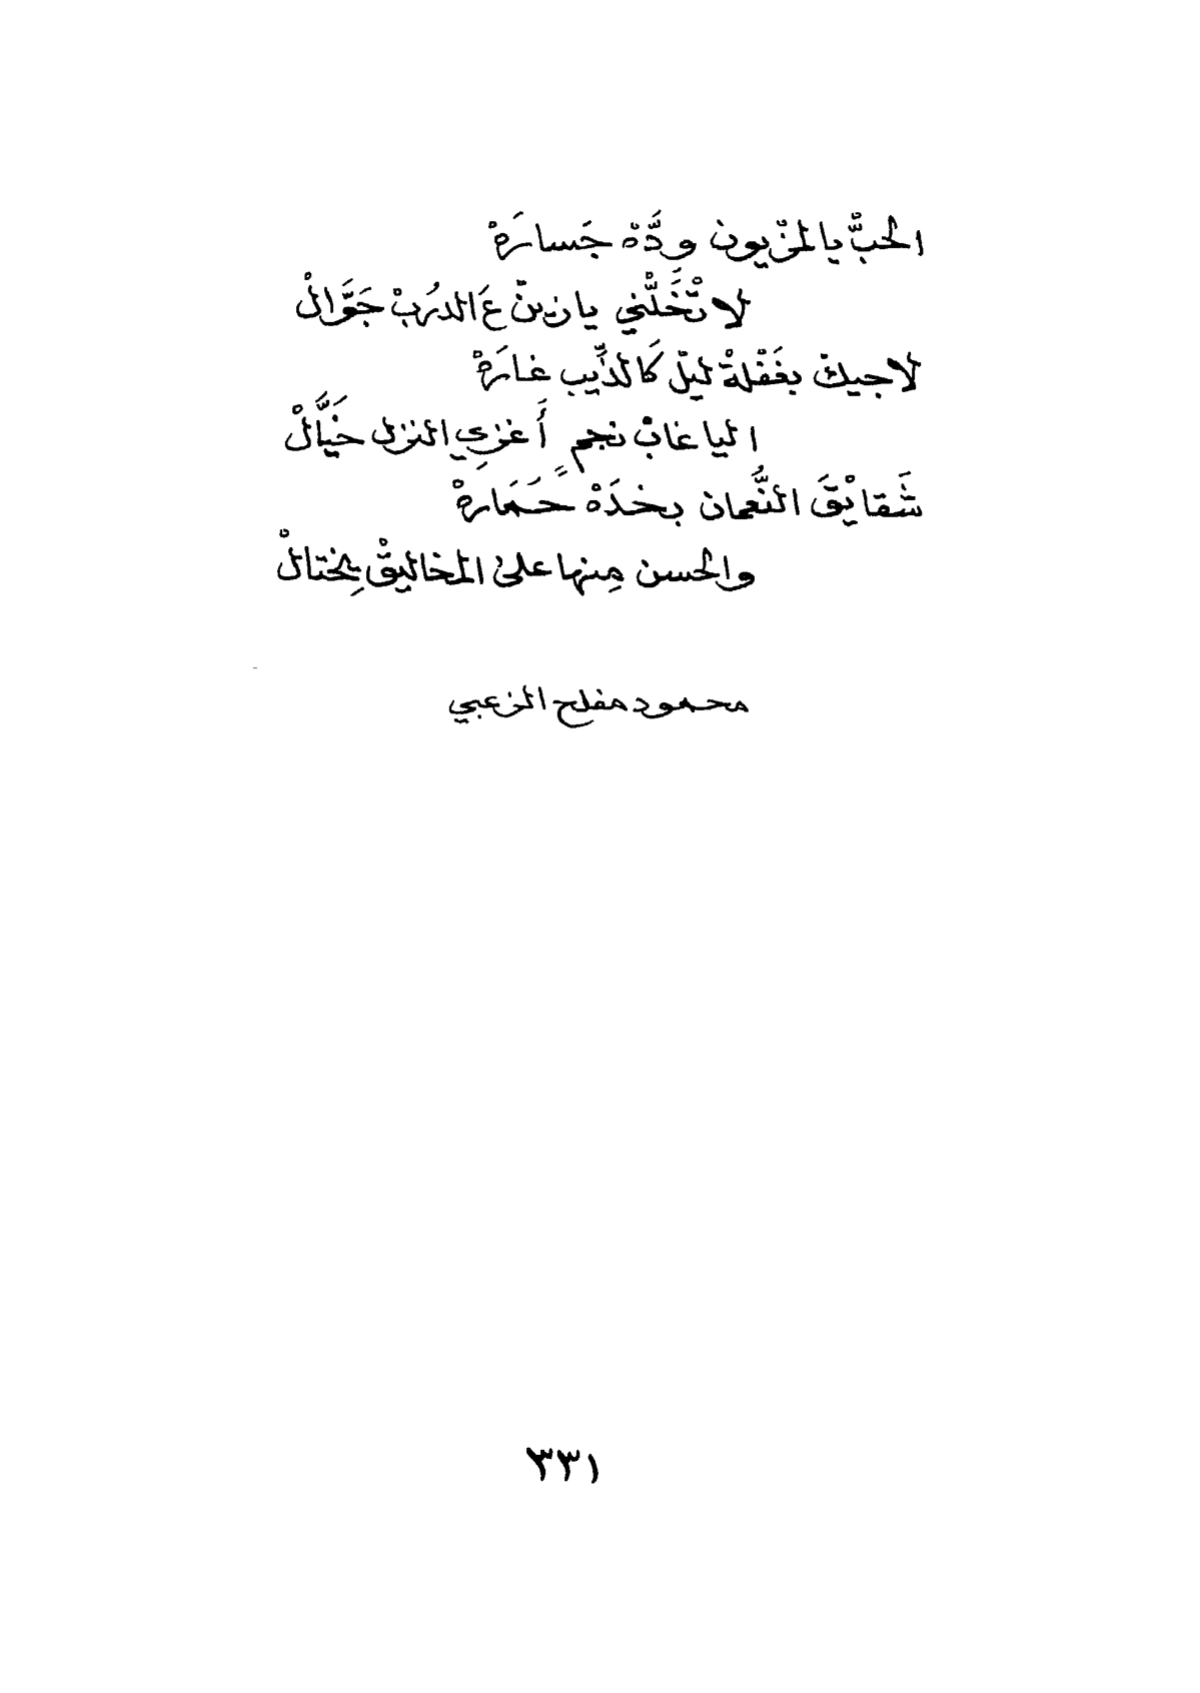 الحبّْ يالمزْيون ودَّهْ جَسارَهْ
لا تْخَلّْني يا زينْ عَ الدرُبْ جَوَّالْ
لاجيكْ بغَفْلةْ ليلْ كَالذّيب غارَهْ
اليا غابْ نجمٍ أَغزِي النزل خَيَّالْ
شَقايْقَ النُّعمان بخدَهْ حَمَارَهْ
والحسن مِنها على المخاليقْ يِختالْ
محمود مفلح الزعبي
٣٣١